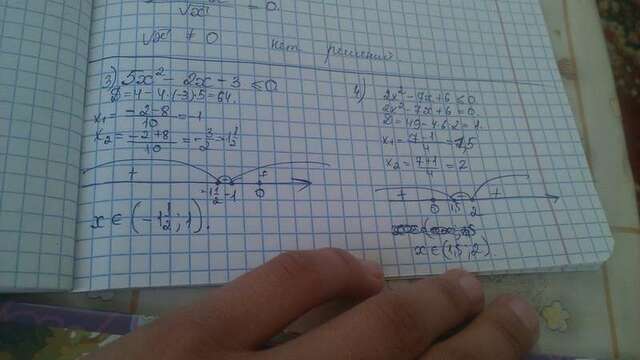 √x
= 0.
√x ≠ 0
нет решений
3) 5x² - 2x - 3 ≤ 0
D = 4 - 4·(-3)·5 = 64.
x₁ = (-2-8)/10 = -1
x₂ = (-2+8)/10 = -3/2 = -1 1/2
+ - +
-1 1/2 -1 0
x ∈ (-1 1/2; 1).
4) 2x² - 7x + 6 ≤ 0
2x² - 7x + 6 = 0
D = 49 - 4·6·2 = 1.
x₁ = (7-1)/4 = 1,5
x₂ = (7+1)/4 = 2
+ - +
0 1,5 2
x ∈ (1,5; 2).